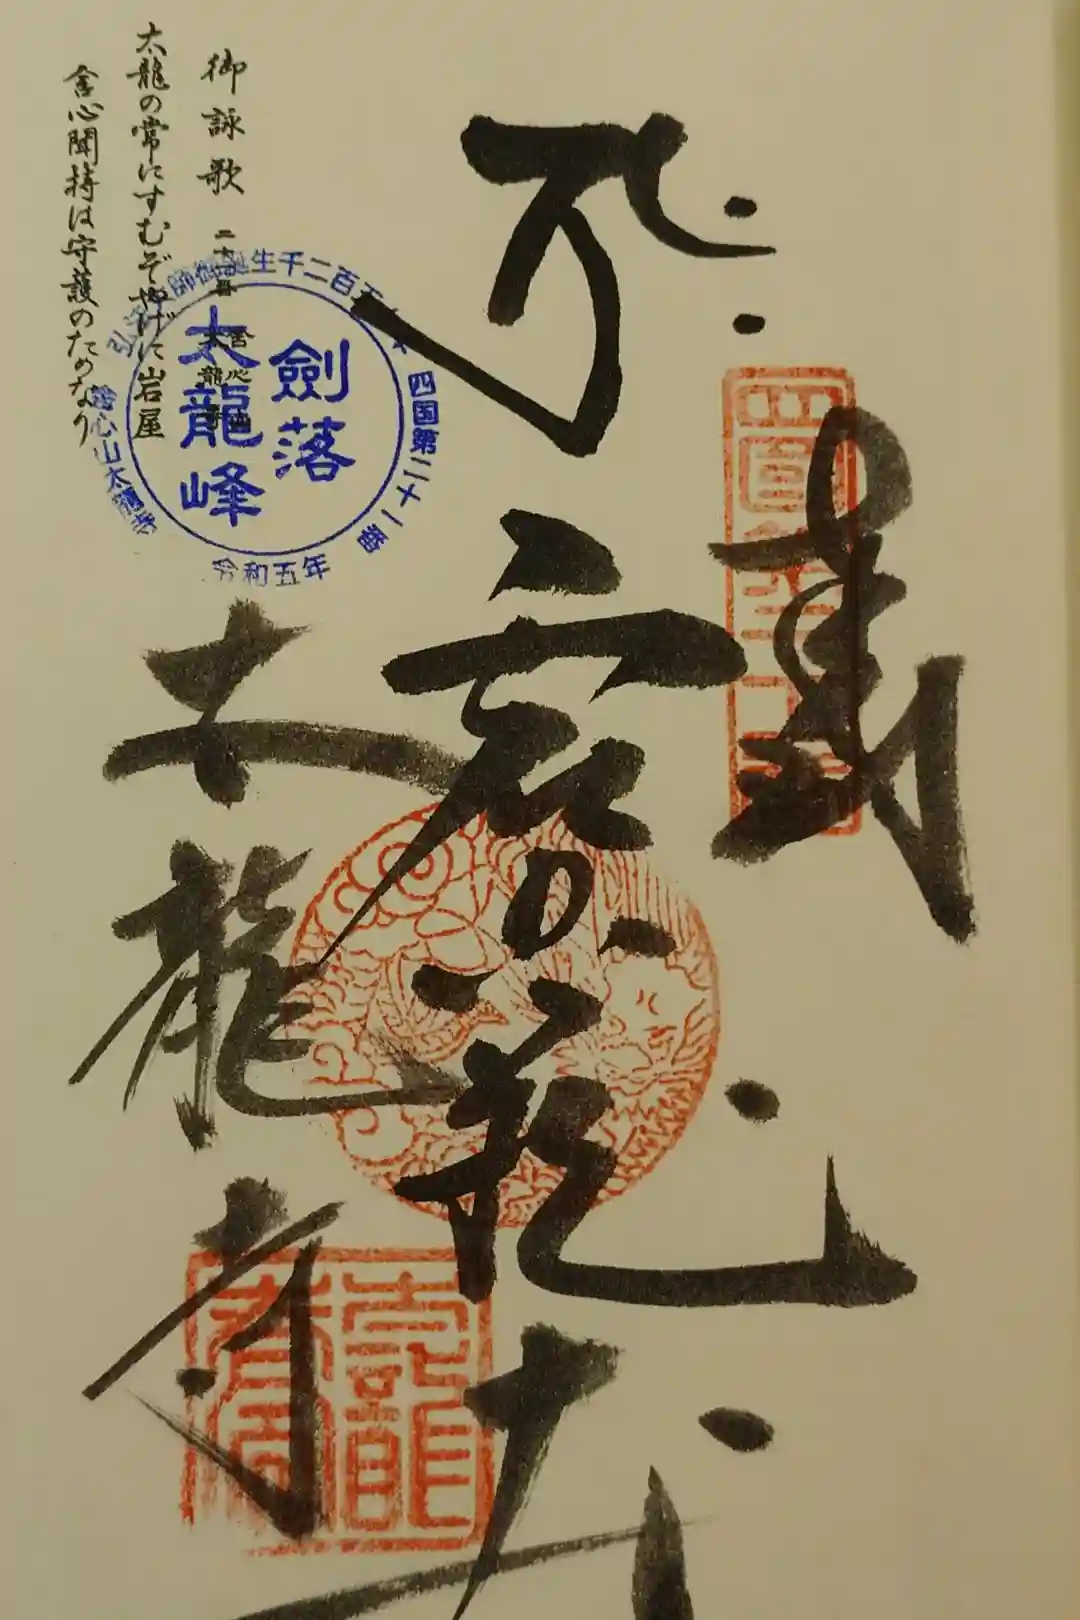 奉
四国第二十一番
虚空蔵
太龍寺
御詠歌
二十一番
舎心山
太龍寺
太龍の常にすむぞやげに岩屋
舎心聞持は守護のためなり
弘法大師御誕生千二百五十年
四国第二十一番
舎心山太龍寺
令和五年
劍落
太龍峰